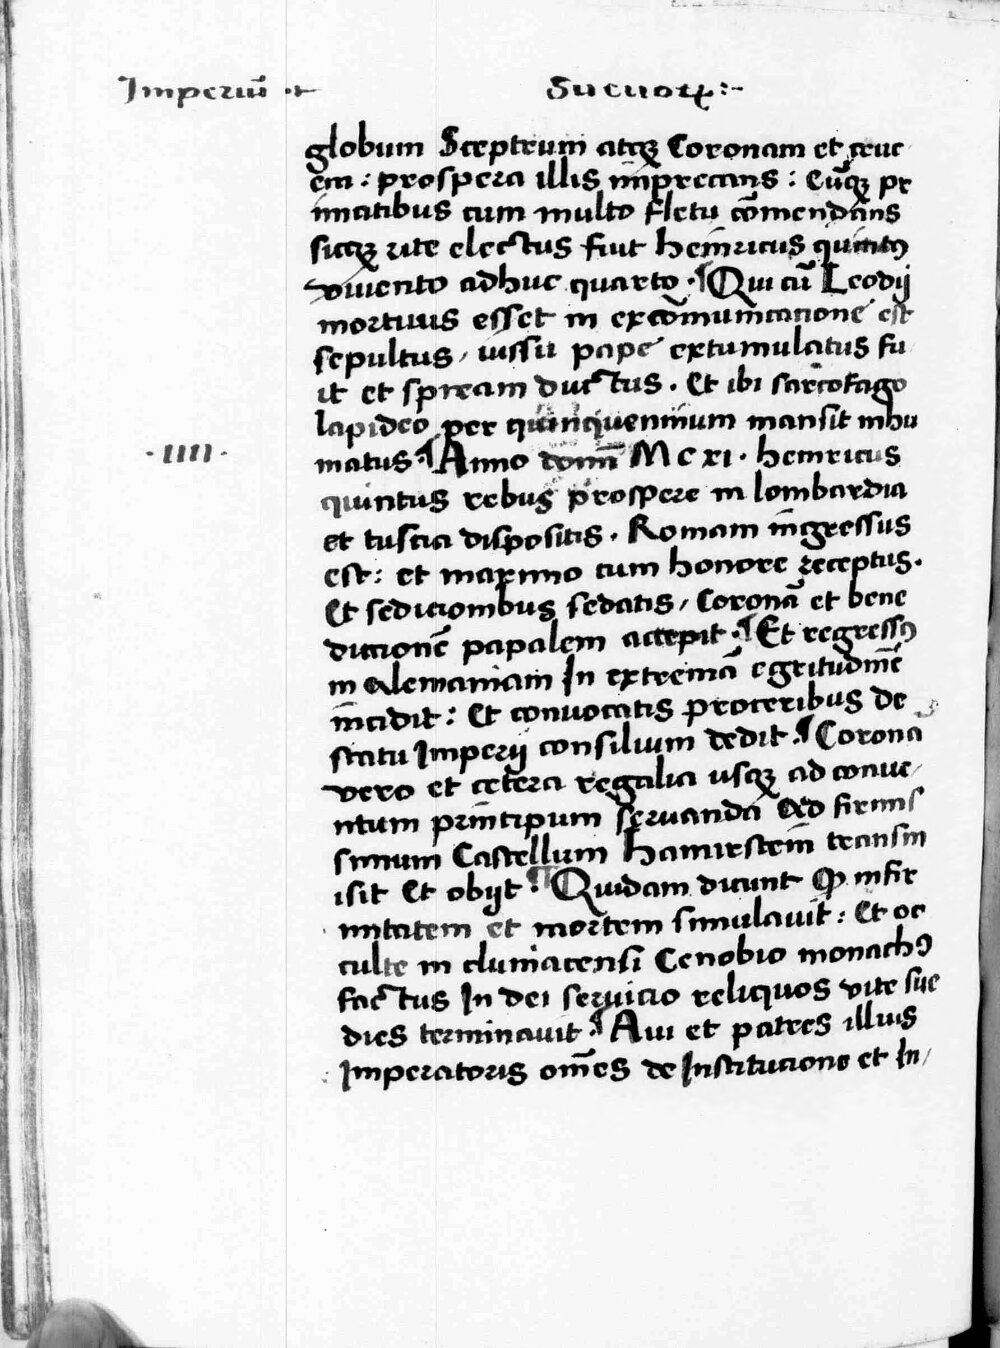 Imperiū et Sueuoꝝ :-
globum Sceptrum atqꝫ Coronam et cruc
em : prospera illis īmprecans : Eūqꝫ pr
imatibus cum multo fletu cōmendans
sicqꝫ rite electus fiut heīnricus quintꝰ
viuento adhuc quarto · ¶ Qui cū Leodij
mortuus esset in excōmunicatione est
sepultus / iussu pape extumulatus fu
it et spiream ductus . Et ibi sarcofago
lapideo per quinquennium mansit inhu
·IIII· matus ¶ Anno domī M C XI . heinricus
quintus rebus prospere in lombardia
et tuscia dispositis . Romam īngressus
est : et maximo cum honore receptus .
Et sedicionibus sedatis / Coronā et bene
dictionē papalem accepit . ¶ Et regressꝰ
in alemaniam In extremā egritudinē
īncidit : Et conuocatis proceribus de
statu Imperij consilium dedit . ¶ Corona
vero et cetera regalia usqꝫ ad conue /
ntum prīncipum seruanda Ad firmis
simum Castellum hamirsteīn transm
isit Et obijt . ¶ Quidam dicunt Qꝫ infir
mitatem et mortem simulauit : Et oc
culte in cluniacensi Cenobio monachꝰ
factus In dei seruicio reliquos vite sue
dies terminauit ¶ Aui et patres illius
Imperatoris om̄es de Institucione et In /